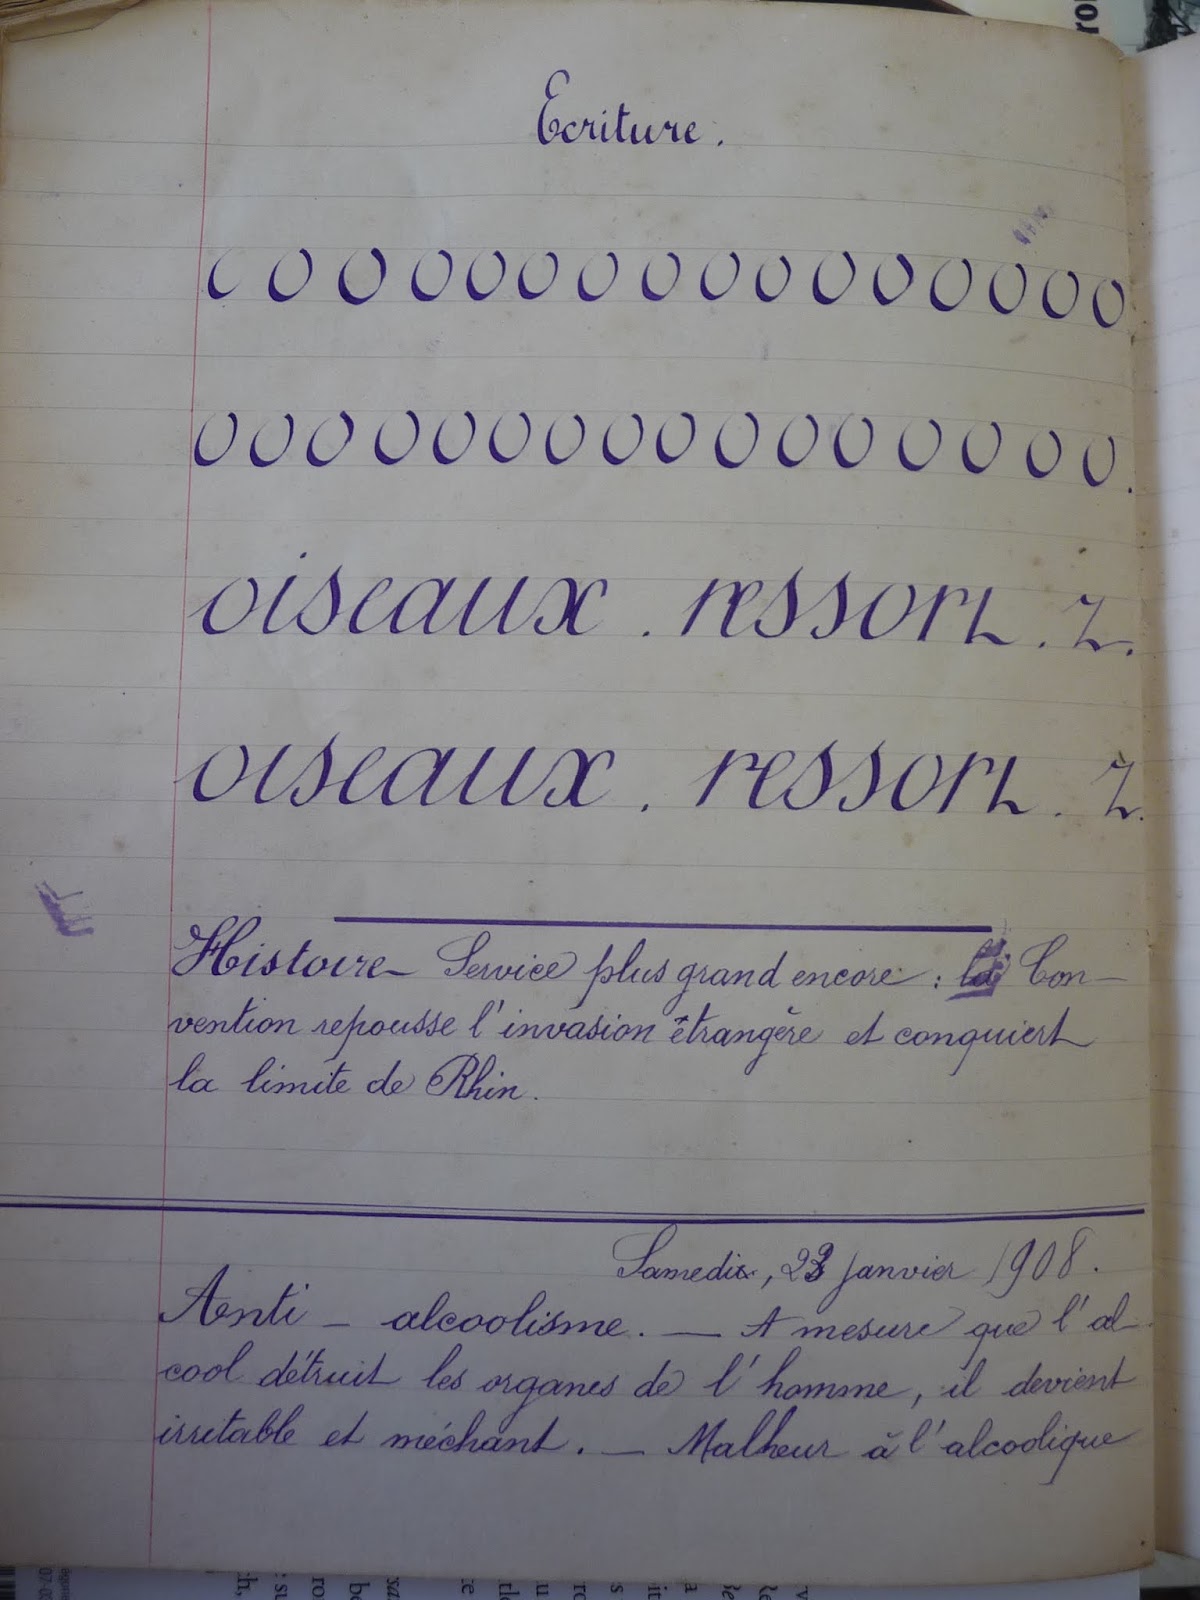 Ecriture.
c o o o o o o o o o o o o o o o
o o o o o o o o o o o o o o o o.
oiseaux. ressort. z.
oiseaux. ressort. z.
Histoire – Service plus grand encore : la Con–
vention repousse l'invasion étrangère et conquiert
la limite de Rhin.
Samedi, 23 janvier 1908.
Anti – alcoolisme. — A mesure que l'al–
cool détruit les organes de l'homme, il devient
irritable et méchant. — Malheur à l'alcoolique